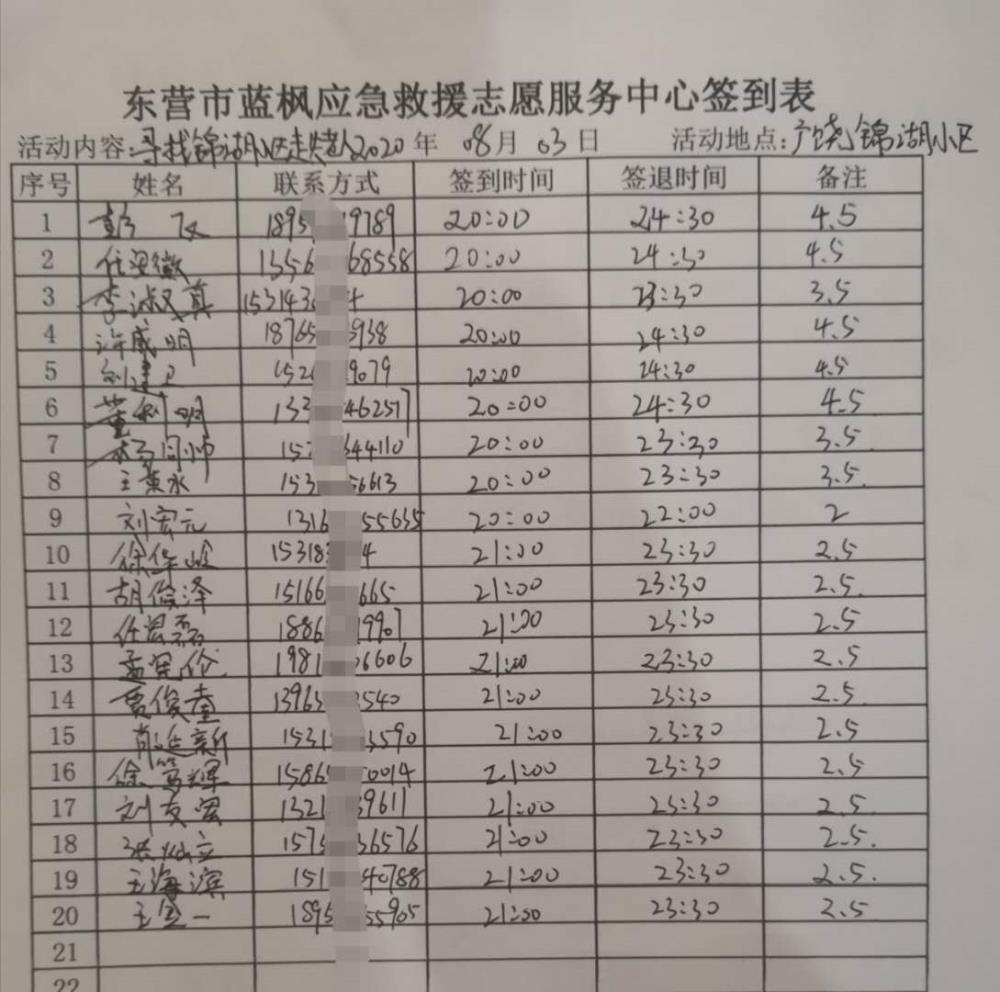 东营市蓝枫应急救援志愿服务中心签到表
活动内容:寻找锦湖小区走失老人2020年 08月 03日 活动地点:广饶锦湖小区
序号 姓名 联系方式 签到时间 签退时间 备注
1 彭飞 1895 19789 20:00 24:30 4.5
2 1356 68558 20:00 24:30 4.5
3 李淑真 153143 4 20:00 23:30 3.5
4 许威明 18765 3938 20:00 24:30 4.5
5 刘建卫 152 9079 20:00 24:30 4.5
6 董利明 133 46257 20:00 24:30 4.5
7 杨同帅 152 644110 20:00 23:30 3.5
8 王黄永 153 56613 20:00 23:30 3.5
9 刘宏元 1316 55635 20:00 22:00 2
10 徐华岭 15318 4 21:00 23:30 2.5
11 胡俊泽 15166 665 21:00 23:30 2.5
12 任洪磊 1886 19907 21:00 23:30 2.5
13 1981 06606 21:00 23:30 2.5
14 贾俊奎 13965 3540 21:00 23:30 2.5
15 肖延新 1531 3590 21:00 23:30 2.5
16 徐笃辉 1586 0014 21:00 23:30 2.5
17 刘友 1321 39611 21:00 23:30 2.5
18 1573 36576 21:00 23:30 2.5
19 王海滨 151 40788 21:00 23:30 2.5
20 王 一 1895 55905 21:00 23:30 2.5
21
22